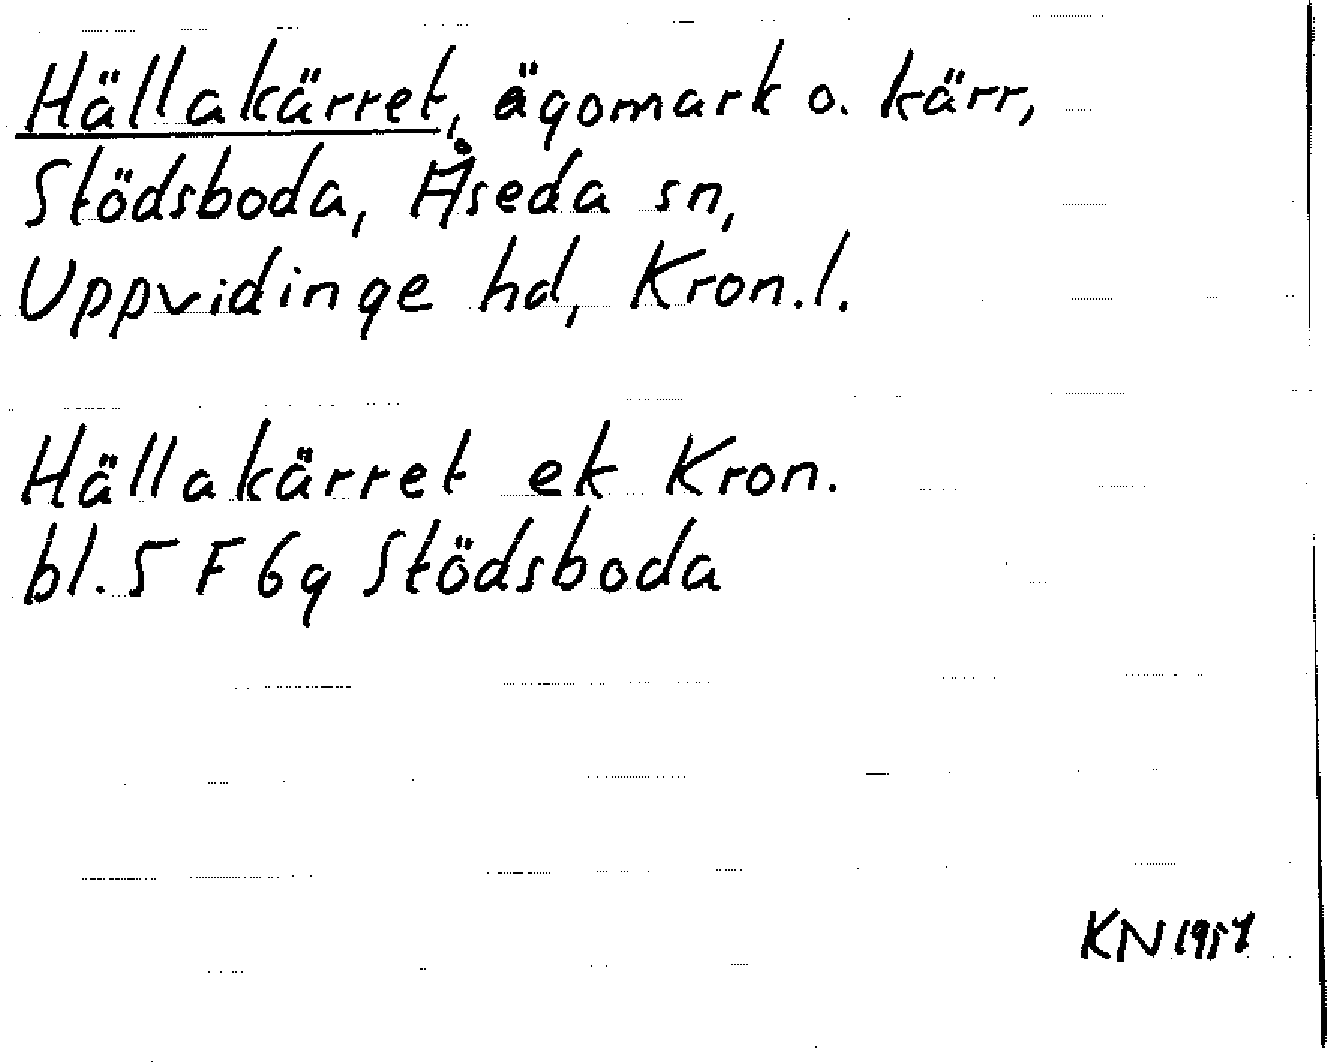 Hällakärret, ägomark o. kärr,
Stödsboda, Åseda sn,
Uppvidinge hd, Kron.l.
Hällakärret ek Kron.
bl. 5 F 6g Stödsboda
KN